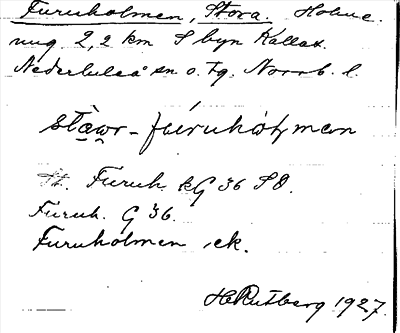 Furuholmen, Stora. Holme.
ung 2,2 km S byn Kallax.
Nederluleå sn o. tg. Norrb. l.
stawr-furuhormen
St. Furuh. kG 36 SO.
Furuh. G 36.
Furuholmen ek.
H Rutberg 1927.